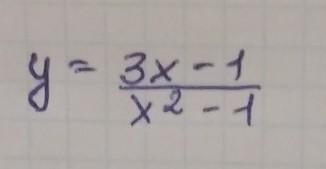 y = \frac{3x - 1}{x^2 - 1}